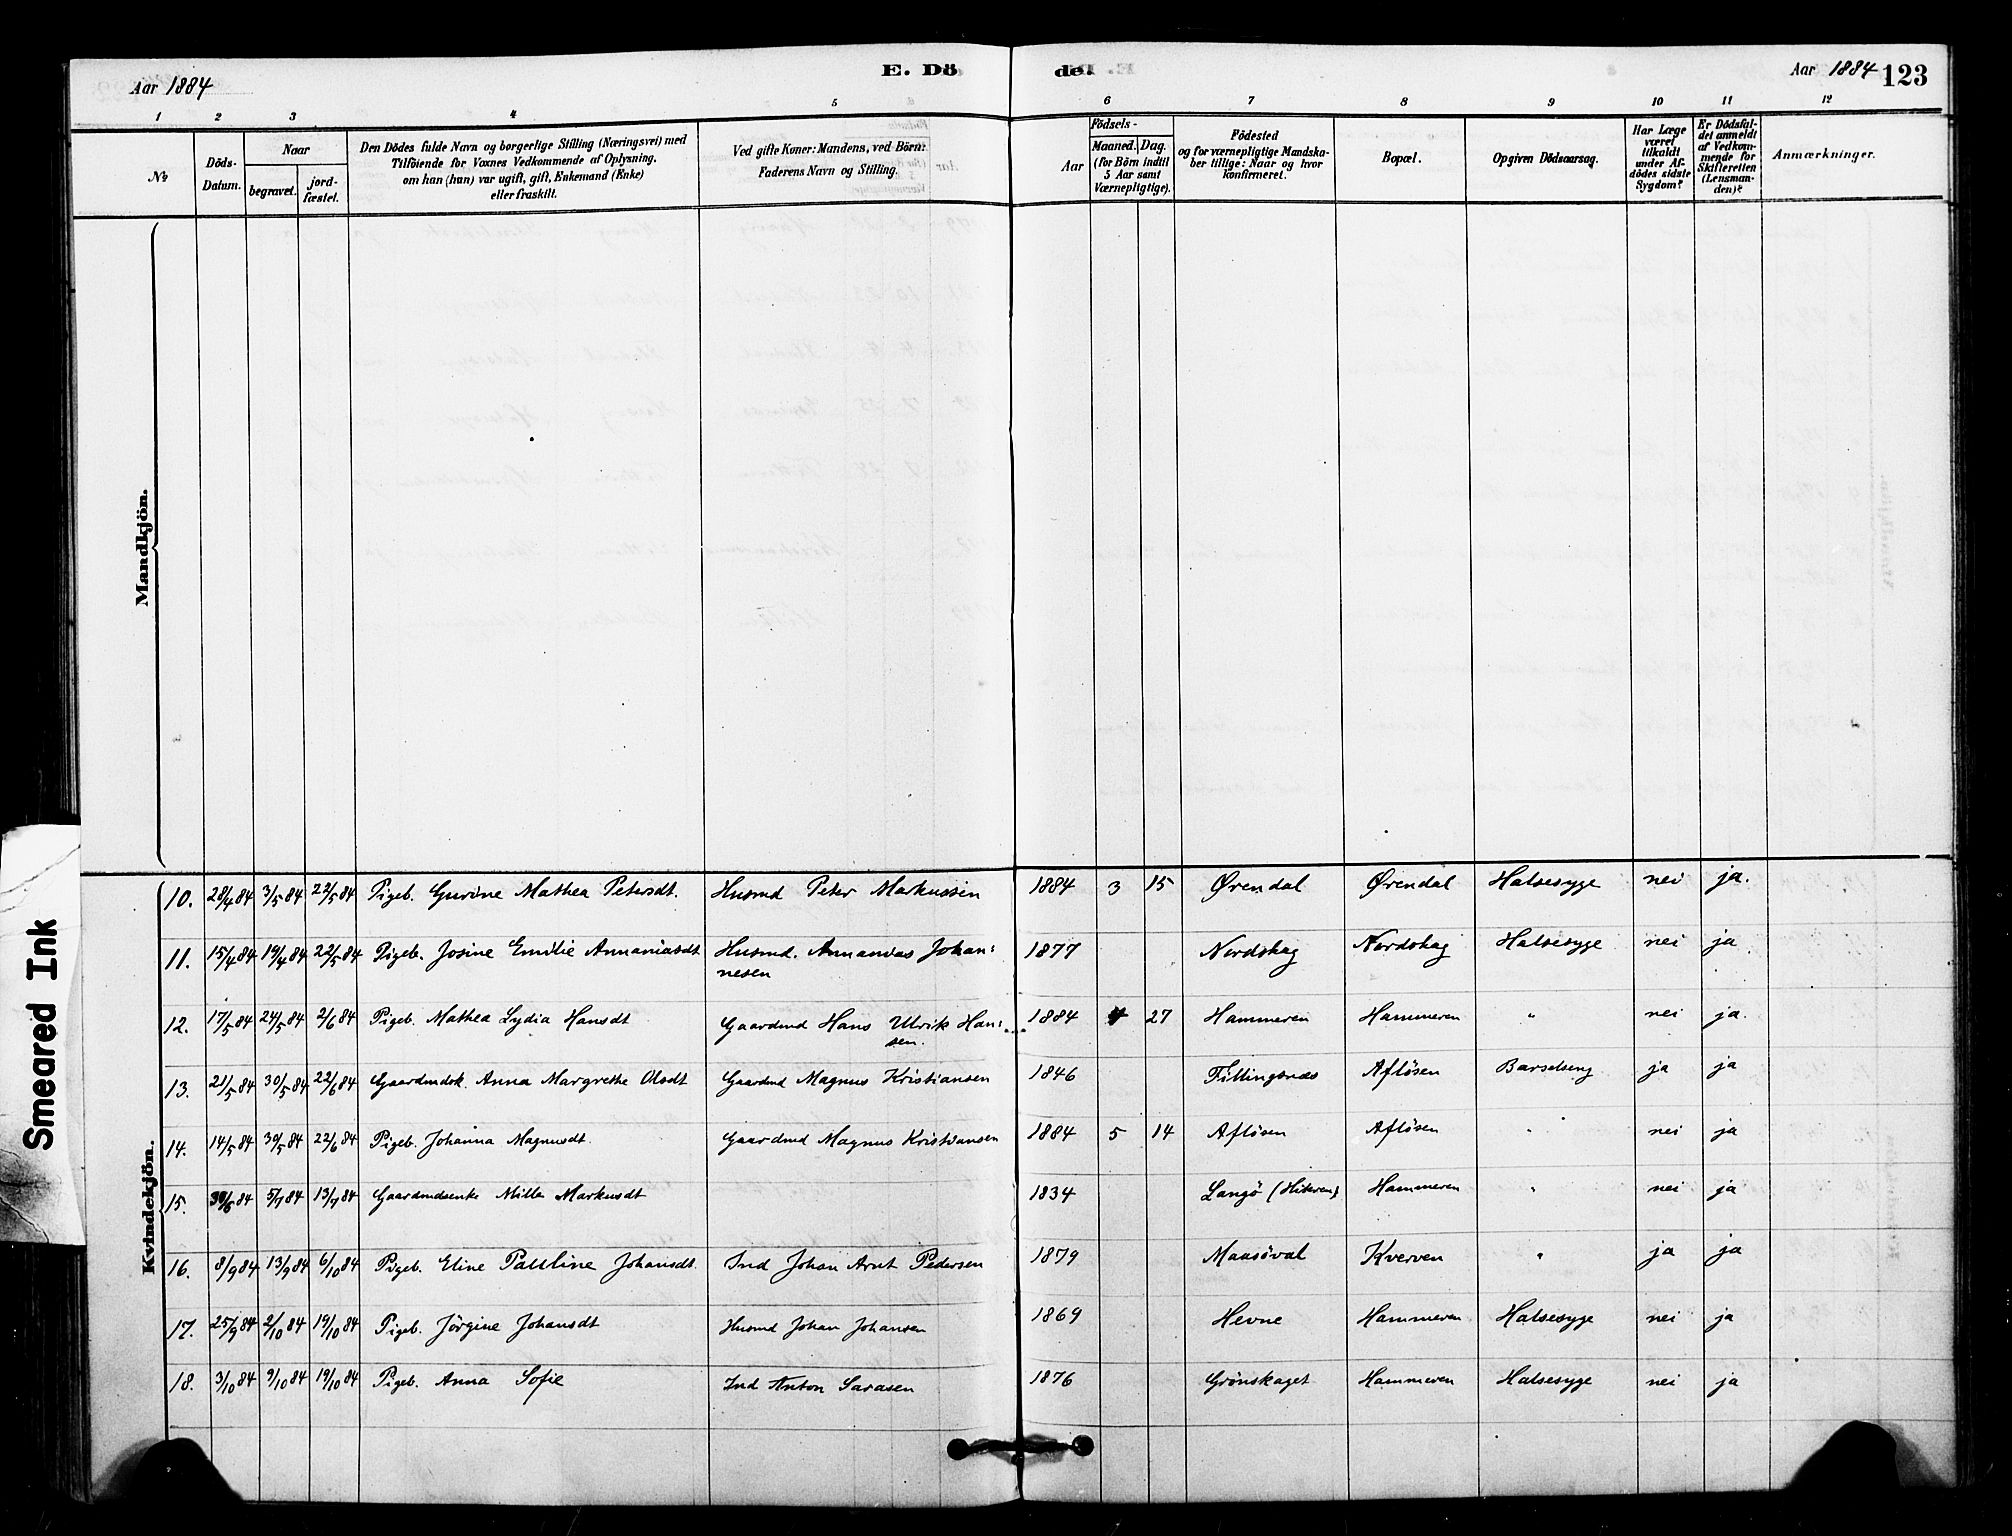 Aar 1884
E. Dö
de.
Aar 1884
123
1 2 3 4 5 6 7 8 9 10 11 12
No
Döds-
Datum.
Naar
begravet.
jord-
fæstet.
Den Dödes fulde Navn og borgerlige Stilling (Næringsvei) med
Tilföiende for Voxnes Vedkommende af Oplysning,
om han (hun) var ugift, gift, Enkemand (Enke)
eller fraskilt.
Ved gifte Koner: Mandens, ved Börn:
Faderens Navn og Stilling.
Födsels-
Aar
Maaned.
Dag.
(for Börn indtil
5 Aar samt
Værnepligtige).
Födested
og for værnepligtige Mandska-
ber tillige: Naar og hvor
konfirmeret.
Bopæl.
Opgiven Dödsaarsag.
Har Læge
været
tilkaldt
under Af-
dödes sidste
Sygdom?
Er Dödsfal-
det anmeldt
af Vedkom-
mende for
Skifteretten
(Lensman-
den)?
Anmærkninger.
Mandkjön.
Kvindekjön.
10. 28/4 84 3/5 84 22/5 84 Pigeb. Gurine Mathea Petersdt. Husmd Peter Markussen 1884 3 15 Ørendal Ørendal Halsesyge nei ja.
11. 15/4 84 19/4 84 22/5 84 Pigeb. Josine Emilie Annaniasdt Husmd. Annanias Johan: 1877 Nordskag Nordskag Halsesyge nei ja
nesen
12. 17/5 84 24/5 84 2/6 84 Pigeb. Mathea Lydia Hansdt Gaardmd Hans Ulrik Han: 1884 4 27 Hammeren Hammeren " nei ja.
sen.
13. 21/5 84 30/5 84 22/6 84 Gaardmdsk. Anna Margrethe Olsdt Gaardmd Magnus Kristiansen 1846 Fillingsnæs Afløsen Barselseng ja ja
14. 14/5 84 30/5 84 22/6 84 Pigeb. Johanna Magnusdt. Gaardmd Magnus Kristiansen 1884 5 14 Afløsen Afløsen " nei ja
15. 30/6 84 5/7 84 13/7 84 Gaardmdsenke Milla Markusdt 1834 Langö (Hiteren) Hammeren " nei ja
16. 8/9 84 13/9 84 6/10 84 Pigeb. Eline Pauline Johansdt. Ind Johan Arnt Pedersen 1879 Maasöval Kverven " ja ja
17. 25/9 84 2/10 84 19/10 84 Pigeb. Jörgine Johansdt Husmd Johan Johansen 1869 Hevne Hammeren Halsesyge nei ja
18. 3/10 84 9/10 84 19/10 84 Pigeb. Anna Sofie Ind Anton Larasen 1876 Grönskaget Hammeren Halsesyge nei ja
Smeared Ink